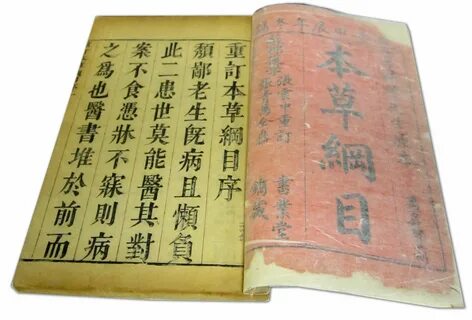 本草綱目
書業堂
重訂本草綱目序
頽鄙老生旣病且懶負
此二患世莫能醫其對
案不食憑牀不寐則病
之爲也醫書堆於前而